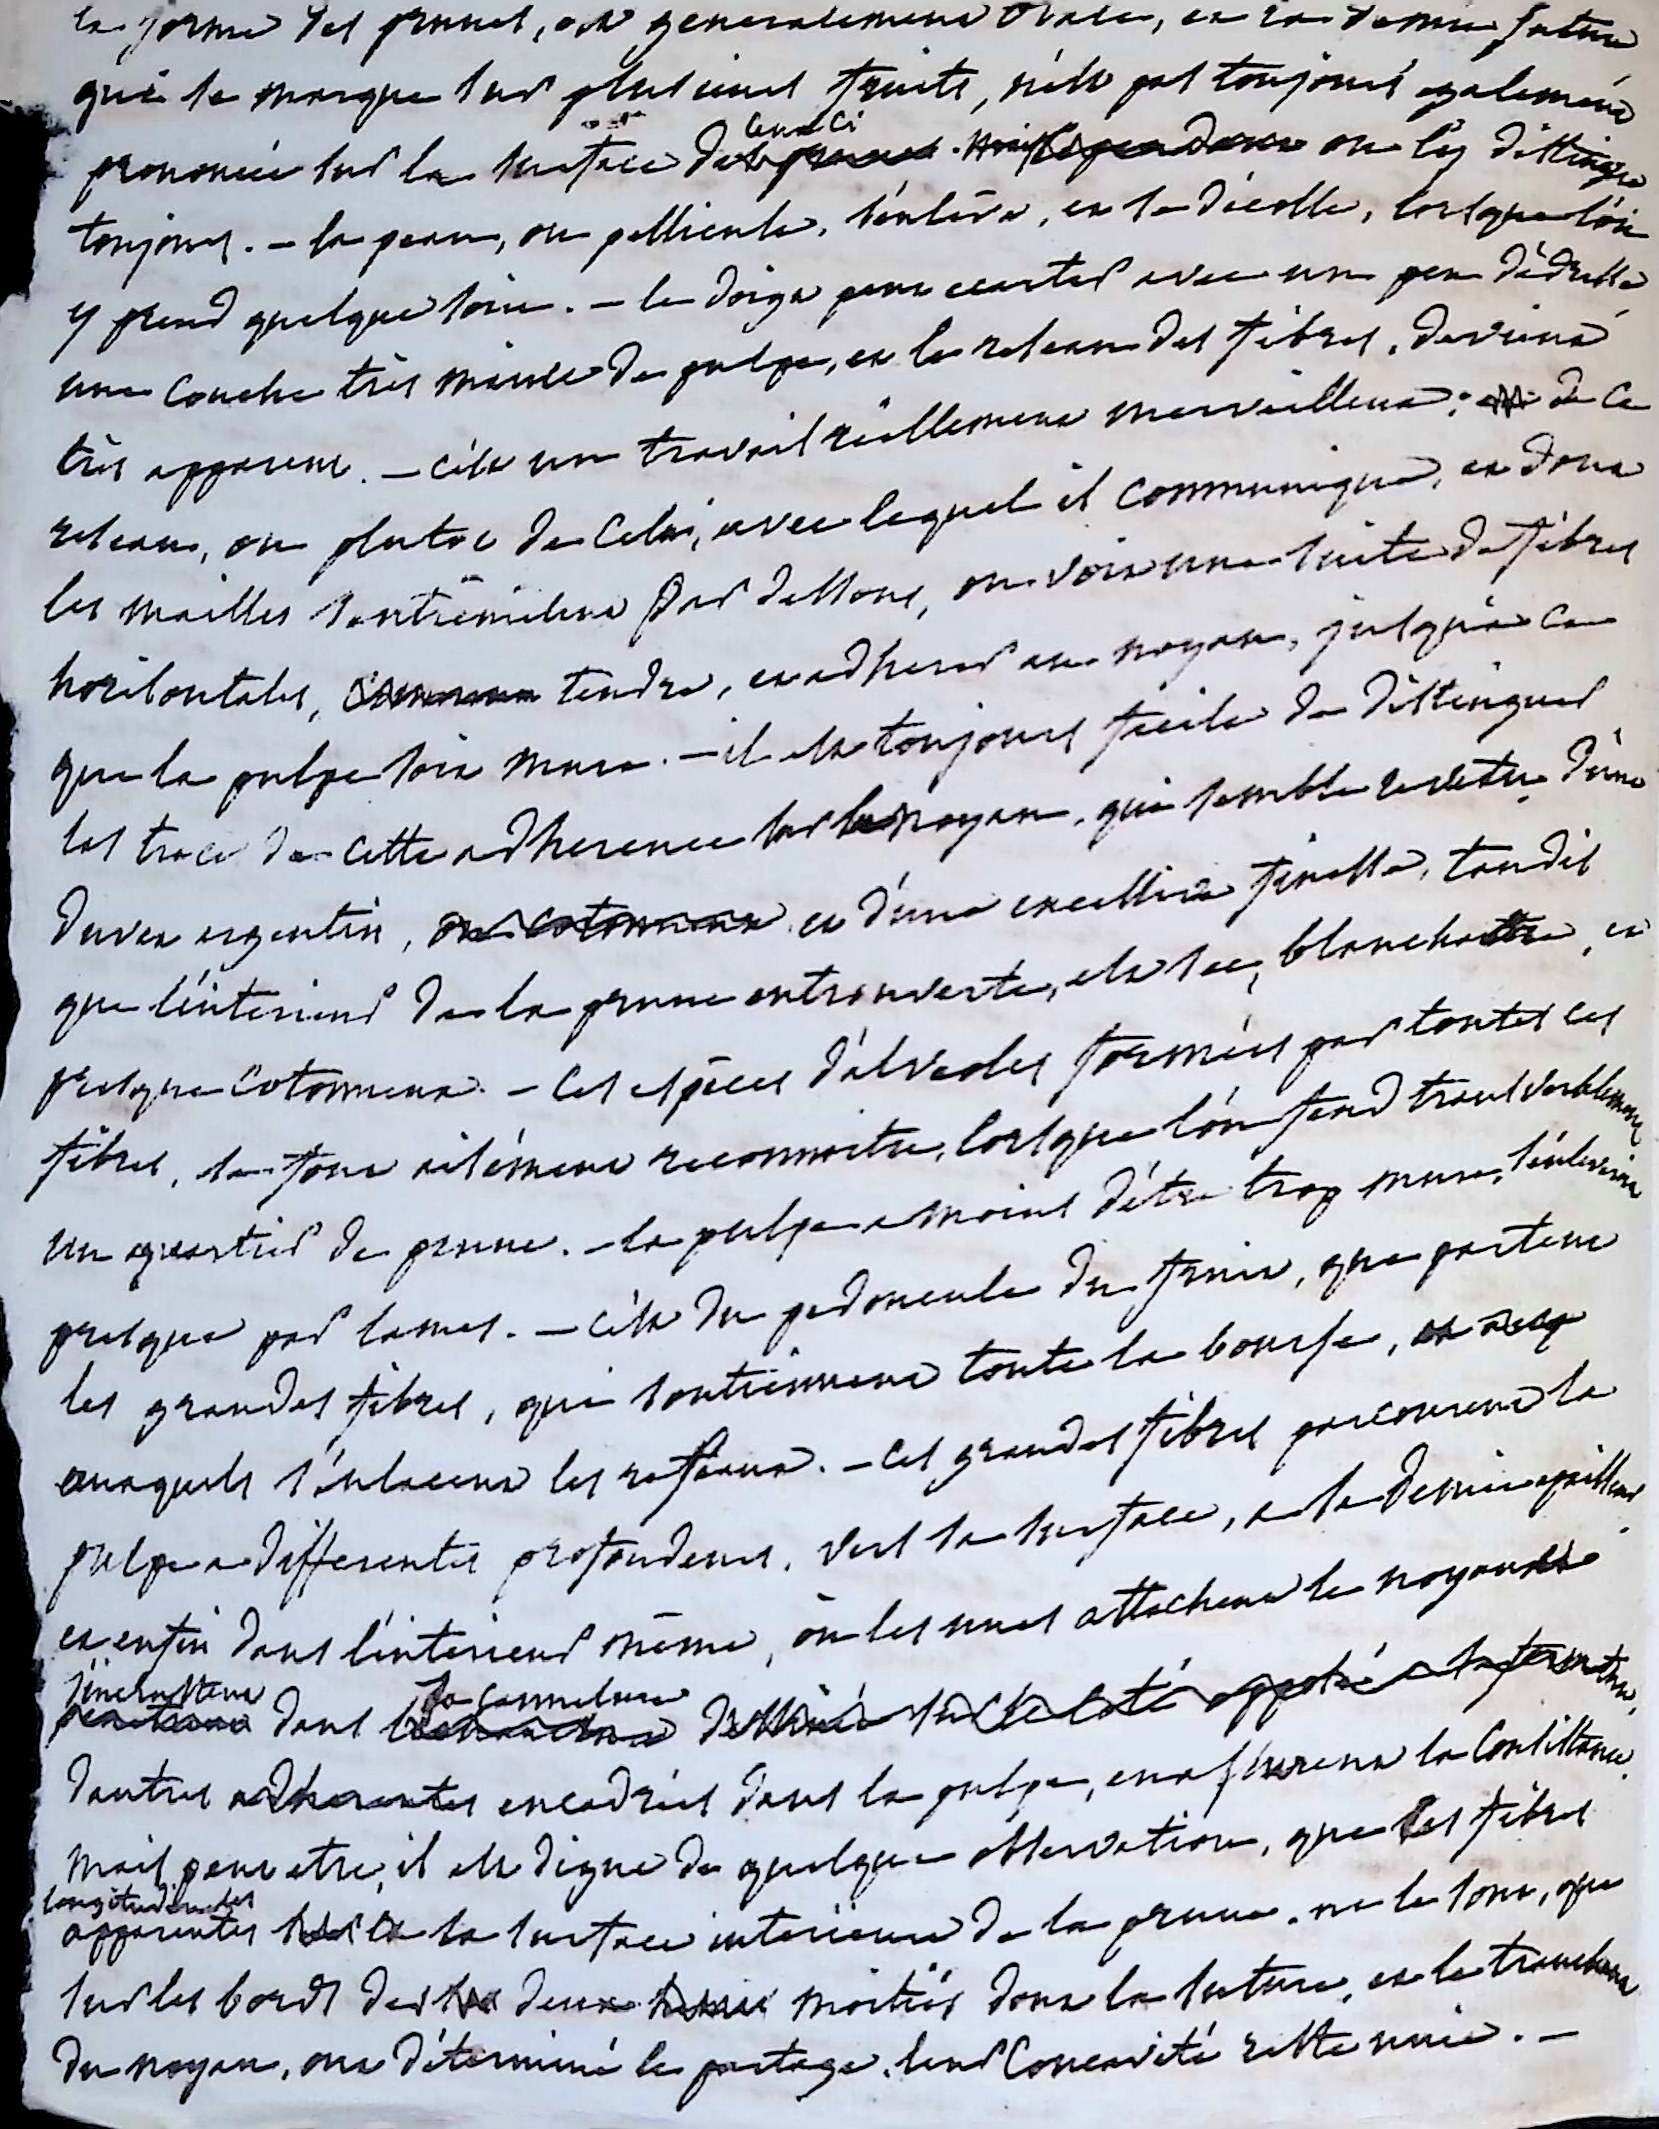 la forme des prunes, est generalement ovale, et la demie suture
qui se marque sur plusieurs fruits, n'est pas toujours egalement
prononcée sur la surface de ceux ci. mais cependant on l'y distingue
toujours. - la peau, ou pellicule, s'enlève, et se décolle, lorsque l'on
y prend quelque soin. - le doigt peut ecarter avec un peu d'adresse
une couche très mince de pulpe, et le reseau des fibres, devient
très apparent. - c'est un travail réellement merveilleux; de ce
reseau, ou plutot de celui, avec lequel il communique, et dont
les mailles s'entremêlent par dessous, on voit une suite de fibres
horisontales, tendre, et adherer au noyau, jusqu'à ce
que la pulpe soit mure. - il est toujours facile de distinguer
les trace de cette adherence sur le noyau, qui semble revetu d'une
duvet argentin, ou cotonneux et d'une excessive finesse, tandis
que l'interieur de la prune entrouverte, est sec, blanchatre, et
presque cotonneux. - ces espèces d'alveoles formées par toutes ces
fibres, se font aisément reconnoitre, lorsque l'on fend transversalement
un quartier de prune. - la pulpe a moins d'être trop mure, s'enleveroit
presque par lames. - c'est du pedoncule du fruit, que partent
les grandes fibres, qui soutiennent toute la bourse, et
auxquels s'enlacent les reseaux. - ces grandes fibres parcourent la
pulpe a differentes profondeurs, vers sa surface, a sa demie epaisseur,
et enfin dans l'interieur même, où les unes attachent le noyau et
s'incrustent dans la cannelure dessinée sur le coté opposé a la fermeture,
d'autres adherentes encadrées dans la pulpe, en assurent la consistance.
mais peut etre, il est digne de quelque observation, que les fibres
longitudinales
apparentes sur la surface interieure de la prune, ne le sont, que
sur les bords des deux moitiés dont la suture, et le tranchant
du noyau, ont déterminé le partage. leur concavité reste unie. -